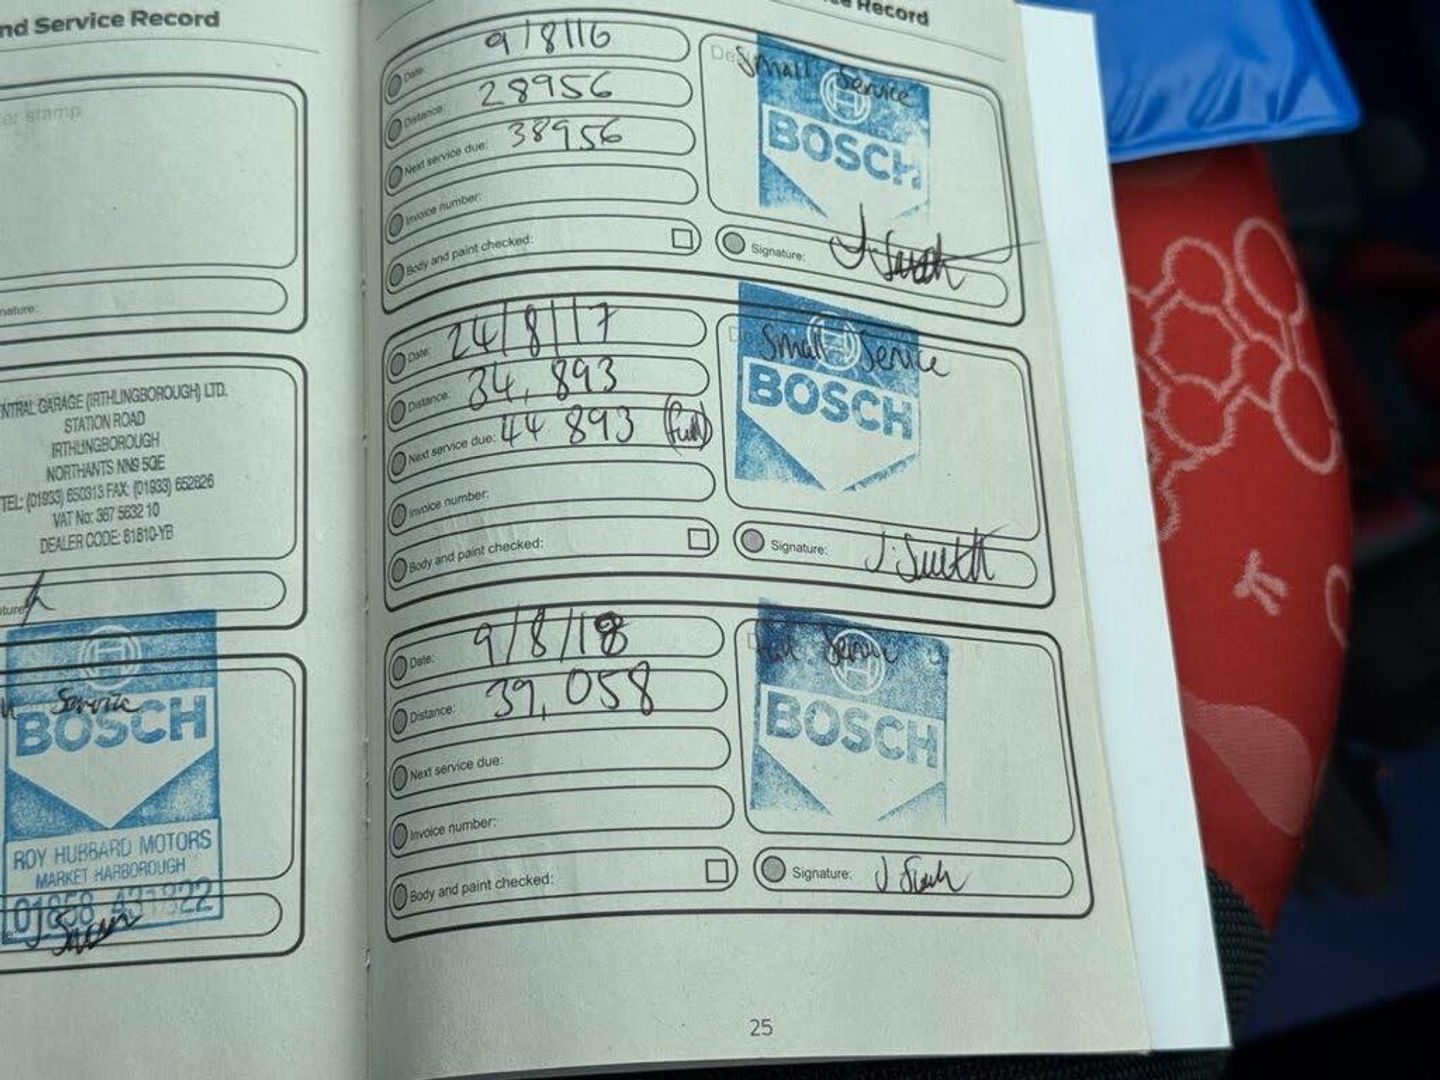 nd Service Record
er stamp
nature:
NTRAL GARAGE (IRTHLINGBOROUGH) LTD.
STATION ROAD
IRTHLINGBOROUGH
NORTHANTS NN9 5QE
TEL: (01933) 650313 FAX: (01933) 652626
VAT No: 367 5632 10
DEALER CODE: 81810-YB
ature
Service
BOSCH
ROY HUBBARD MOTORS
MARKET HARBOROUGH
01858 431922
ce Record
Date: 9/8/16
Distance: 28956
Next service due: 38956
Invoice number:
Body and paint checked:
De
Small Service
BOSCH
Signature: J. Smith
Date: 24/8/17
Distance: 34,893
Next service due: 44 893 (full)
Invoice number:
Body and paint checked:
Small Service
BOSCH
Signature: J. Smith
Date: 9/8/18
Distance: 39,058
Next service due:
Invoice number:
Body and paint checked:
Service
BOSCH
Signature:
25